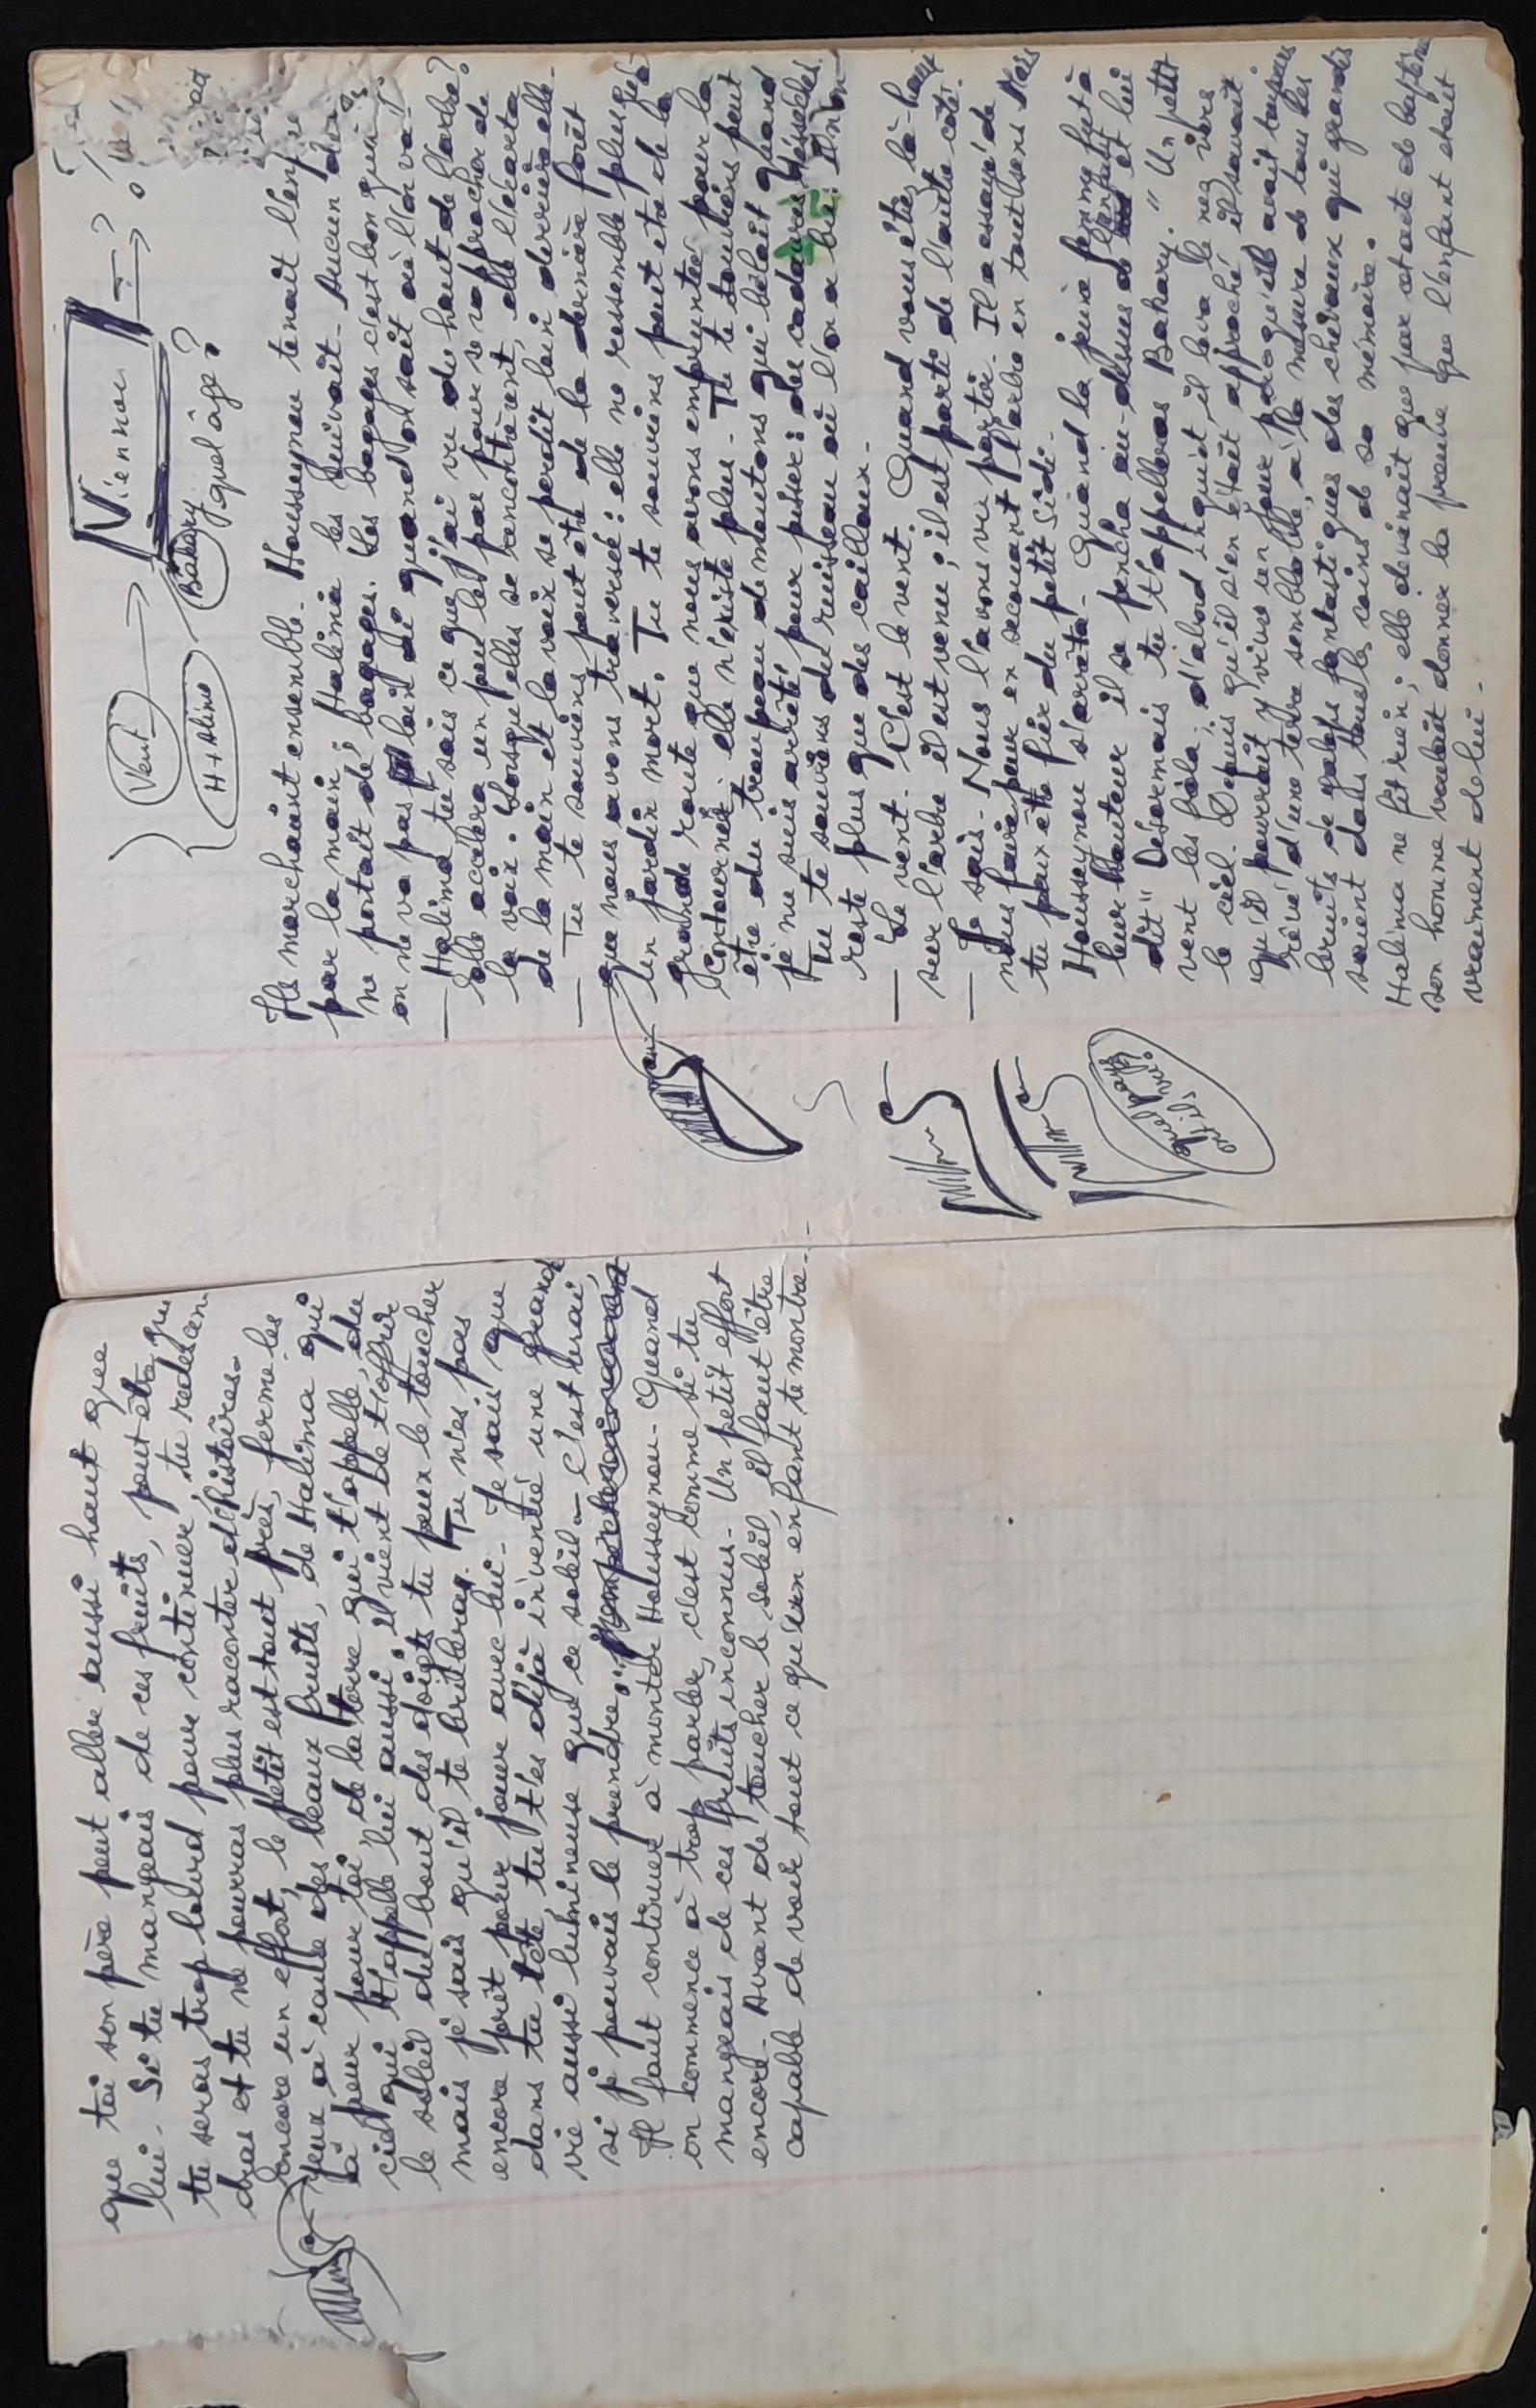 que toi son père peut aller aussi haut que
lui. Si tu mangeais de ces fruits, peut être que
tu seras trop lourd pour continuer, tu redescen-
dras et tu ne pourras plus raconter d'histoires.
Encore un effort, le petit est tout près, ferme les
yeux à cause des beaux fruits, de Halima qui
a peur pour toi, de la terre qui t'appelle, du
ciel qui t'appelle lui aussi, il vient de t'offrir
le soleil du bout des doigts tu peux le toucher
mais je sais qu'il te brûlera. Tu n'es pas
encore prêt pour jouer avec lui. Je sais que
dans ta tête, tu t'es déjà inventé une grande
vie aussi lumineuse que ce soleil - C'est vrai,
si je pouvais le prendre,
Il faut continuer à monter Housseynou. Quand
on commence à trop parler, c'est comme si tu
mangeais de ces fruits inconnus. Un petit effort
encore. Avant de toucher le soleil, il faut être
capable de voir tout ce qu'un enfant te montre.
Vent
H + Alima
Vienne
Bahary
quel âge?
Ils marchaient ensemble. Housseynou tenait l'enfant
par la main, Halima les suivait. Aucun d'eux
ne portait de bagages. Les bagages c'est bon quand
on ne va pas loin ou quand on sait où l'on va.
— Halima tu sais ce que j'ai vu du haut de l'arbre?
Elle accéléra un peu les pas pour se rapprocher de
la voix. Lorsqu'elles se rencontrèrent, elle l'écarta
de la main et la voix se perdit loin derrière elle.
— Tu te souviens peut être de la dernière forêt
que nous avons traversée : elle ne ressemble plus qu'à
un jardin mort. Tu te souviens peut être de la
grande route que nous avons empruntée pour la
contourner : elle n'existe plus. Tu te souviens peut
être du troupeau de moutons qui bêlait quand
je me suis arrêté pour pisser : des cadavres
Tu te souviens du ruisseau où l'on a bu : il n'en
reste plus que des cailloux.
— Le vent. C'est le vent. Quand vous étiez là-haut
sur l'arbre il est venu ; il est parti de l'autre côté.
— Je sais. Nous l'avons vu partir. Il a essayé de
nous faire peur en secouant l'arbre en tout sens Mais
tu peux être fier du petit Sidi.
Housseynou s'arrêta. Quand la jeune femme fut à
leur hauteur il se pencha au-dessus de l'enfant et lui
dit " Désormais tu t'appelleras Bahary. " Un petit
vent les frôla ; d'abord inquiet, il leva le nez vers
le ciel. Depuis qu'il s'en était approché il savait
qu'il pourrait y vivre un jour puisqu'il avait toujours
rêvé d'une terre semblable, à la mesure de tous les
bruits de galops fantastiques des chevaux qui grandis-
saient dans tous les coins de sa mémoire.
Halima ne fit rien ; elle devinait que par cet acte de baptême
son homme voulait donner la preuve que l'enfant était
vraiment de lui.
quel pays
ont-ils
vu?